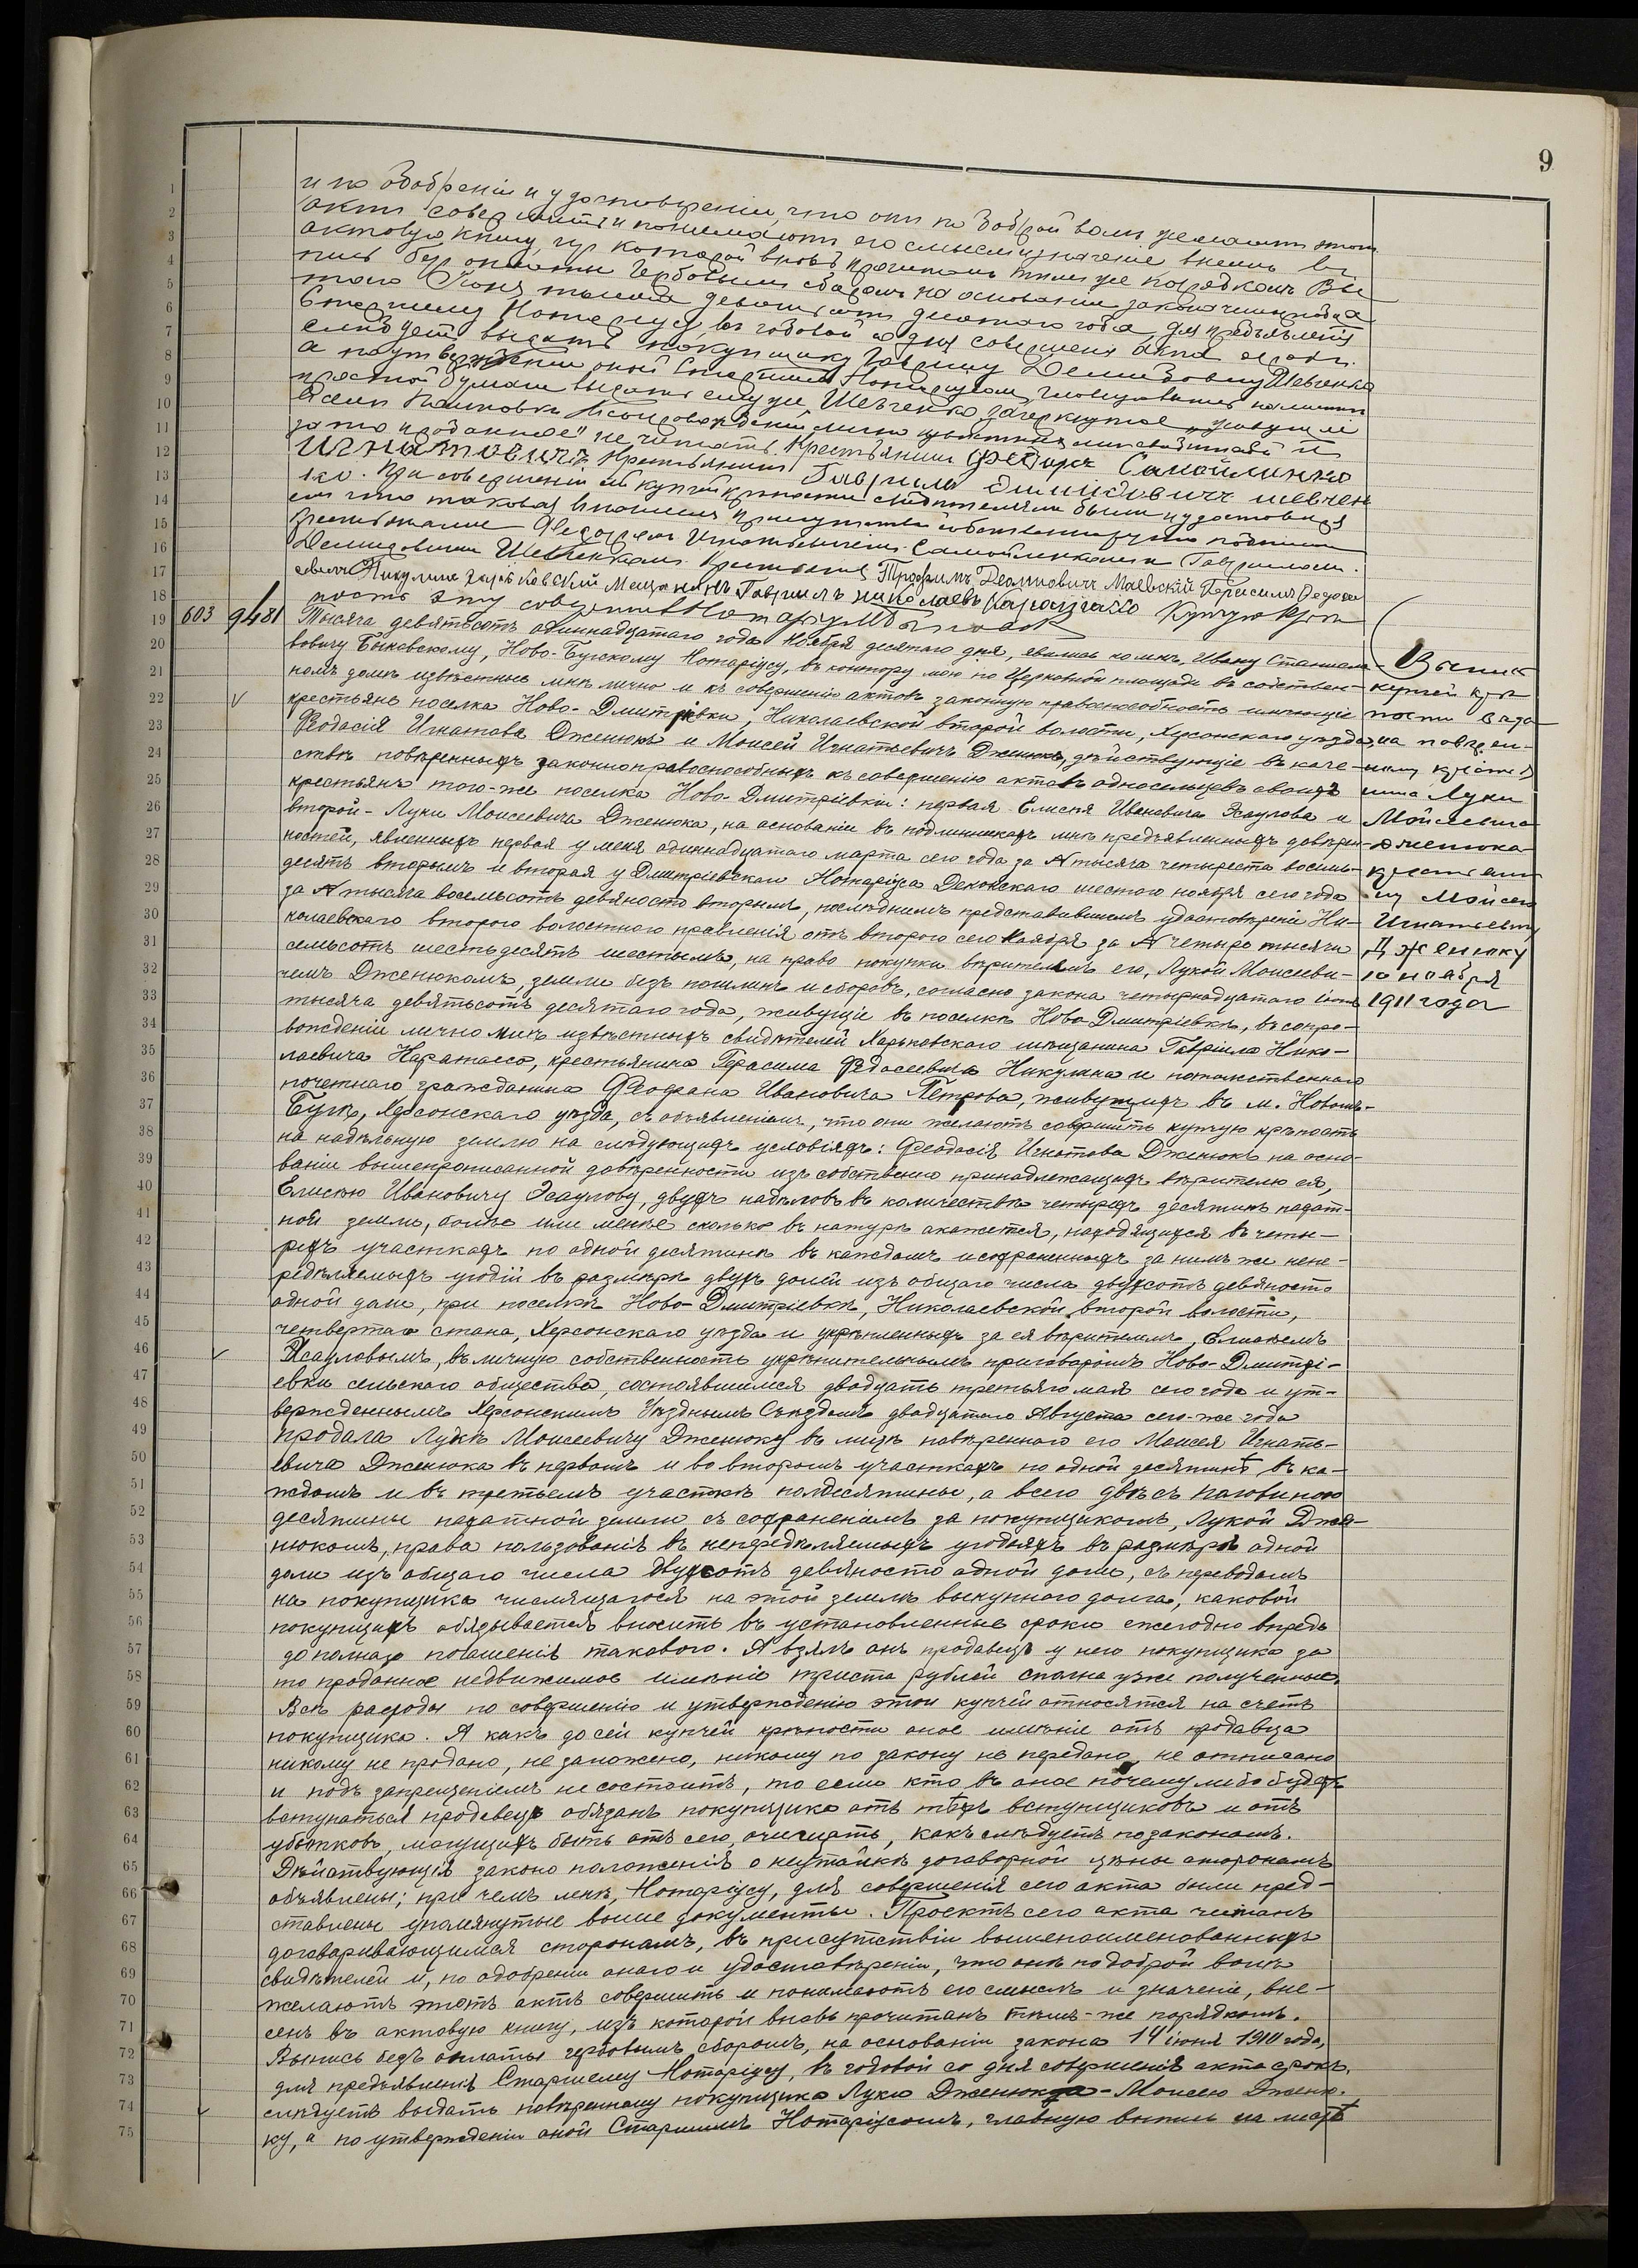 9
и по одобреніи и удостовѣреніи, что они по доброй волѣ желаютъ этотъ
актъ совершить и понимаютъ его смыслъ и значеніе внесенъ въ
актовую книгу, изъ которой вновь прочитанъ тѣмъ же порядкомъ. Вы-
пись безъ оплаты гербовымъ сборомъ на основаніи закона четырнадца
таго Іюня тысяча девятьсотъ десятаго года, для предъявленія
Старшему Нотаріусу, въ годовой со дня совершенія акта срокъ,
слѣдуетъ выдать покупщику Гавріилу Демидовичу Шевченко
а по утвержденіи оной Старшимъ Нотаріусомъ, главную выпись на листѣ
простой бумаги выдать ему же Шевченко. Зачеркнутое „живущіе
не читать. Крестьянинъ Федоръ Самойленко
Игнатовичъ Крестьянинъ Гаврила Димидовичъ Шевчен
ко. При совершеніи сей купчей крѣпости свидѣтелями были и удостовѣряя
емъ что таковая въ нашемъ присутствіи собственноручно подписана
крестьянами Федоромъ Игнатьевичемъ Самойленкомъ и Гавріиломъ
Демидовичемъ Шевченкомъ. Крестьянинъ Трофимъ Деомидовичъ Маевскій Герасимъ Федосе
евичъ Никулинъ Харьковскій Мещанинъ Гавріилъ Николаевъ Каратаево Купчую крѣ
пость эту совершилъ Нотаріусъ
603 9481 Тысяча девятьсотъ одиннадцатаго года Ноября десятаго дня, явились ко мнѣ, Ивану Станисла-
вовичу Быковскому, Ново-Бугскому Нотаріусу, въ контору мою по Церковной площади въ собствен-
номъ домѣ извѣстные мнѣ лично и къ совершенію актовъ законную правоспособность имѣющіе
крестьяне поселка Ново-Дмитріевки, Николаевской второй волости, Херсонскаго уѣзда
Феодосія Игнатова Дженюкъ и Моисей Игнатьевичъ Дженюкъ, дѣйствующіе въ каче-
ствѣ повѣренныхъ законноправоспособныхъ къ совершенію актовъ односельцевъ своихъ
крестьянъ того-же поселка Ново-Дмитріевки: первая - Елисея Ивановича Эсаулова и
второй - Луки Моисеевича Дженюка, на основаніи въ подлинникахъ мнѣ предъявленныхъ довѣрен-
ностей, явленныхъ первая у меня одиннадцатаго марта сего года за № тысяча четыреста восемь-
десятъ вторымъ и вторая у Дмитріевскаго Нотаріуса Деконскаго шестого ноября сего года
за № тысяча восемьсотъ девяносто вторымъ, послѣднимъ представившимъ удостовѣреніе Ни-
колаевскаго второго волостного правленія отъ второго сего Ноября за № четыре тысячи
семьсотъ шестьдесятъ шестымъ, на право покупки вѣрителемъ его, Лукой Моисееви-
чемъ Дженюкомъ, земли безъ пошлинъ и сборовъ, согласно закона четырнадцатаго іюня
тысяча девятьсотъ десятаго года, живущіе въ поселкѣ Ново-Дмитріевкѣ, въ сопро-
вожденіи лично мнѣ извѣстныхъ свидѣтелей Харьковскаго мѣщанина Гавріила Нико-
лаевича Каратаева, крестьянина Герасима Федосеевича Никулина и потомственнаго
почетнаго гражданина Феофана Ивановича Петрова, живущихъ въ м. Новомъ-
Бугѣ, Херсонскаго уѣзда, съ объявленіемъ, что они желаютъ совершить купчую крѣпость
на надѣльную землю на слѣдующихъ условіяхъ: Феодосія Игнатова Дженюкъ на осно-
ваніи вышепрописанной довѣренности изъ собственно принадлежащихъ вѣрителю ея,
Елисею Ивановичу Эсаулову, двухъ надѣловъ въ количествѣ четырехъ десятинъ пахат-
ной земли, болѣе или менѣе сколько въ натурѣ окажется, находящихся въ четы-
рехъ участкахъ по одной десятинѣ въ каждомъ и сохраненныхъ за нимъ же непе-
редѣляемыхъ угодій въ размѣрѣ двухъ долей изъ общаго числа двухсотъ девяносто
одной доли, при поселкѣ Ново-Дмитріевкѣ, Николаевской второй волости,
четвертаго стана, Херсонскаго уѣзда и укрѣпленныхъ за ея вѣрителемъ, Елисеемъ
Эсауловымъ, въ личную собственность укрѣпительнымъ приговоромъ Ново-Дмитрі-
евки сельскаго общества, состоявшимся двадцать третьяго мая сего года и ут-
вержденнымъ Херсонскимъ Уѣзднымъ Съѣздомъ двадцатаго Августа сего-же года
продала Лукѣ Моисеевичу Дженюку въ лицѣ повѣреннаго его Моисея Игнать-
евича Дженюка въ первомъ и во второмъ участкахъ по одной десятинѣ въ ка-
ждомъ и въ третьемъ участкѣ полдесятины, а всего двѣ съ половиною
десятины пахатной земли съ сохраненіемъ за покупщикомъ, Лукой Дже-
нюкомъ, права пользованія въ непередѣляемыхъ угодьяхъ въ размѣрѣ одной
доли изъ общаго числа двухсотъ девяносто одной доли, съ переводомъ
на покупщика числящагося на этой землѣ выкупного долга, каковой
покупщикъ обязывается вносить въ установленные сроки ежегодно впредь
до полнаго погашенія такового. А взялъ онъ продавецъ у него покупщика за
то проданное недвижимое имѣніе триста рублей сполна уже полученные.
Всѣ расходы по совершенію и утвержденію этой купчей относятся на счетъ
покупщика. А какъ до сей купчей крѣпости оное имѣніе отъ продавца
никому не продано, не заложено, никому по закону не передано, не отписано
и подъ запрещеніемъ не состоитъ, то если кто въ оное почему либо будетъ
вступаться продавецъ обязанъ покупщика отъ тѣхъ вступщиковъ и отъ
убытковъ, могущихъ быть отъ сего, очищать, какъ слѣдуетъ по законамъ.
Дѣйствующія законоположенія о неутайкѣ договорной цѣны сторонамъ
объявлены; при чемъ мнѣ, Нотаріусу, для совершенія сего акта были пред-
ставлены упомянутые выше документы. Проектъ сего акта читанъ
договаривающимся сторонамъ, въ присутствіи вышепоименованныхъ
свидѣтелей и, по одобреніи онаго и удостовѣреніи, что онѣ по доброй волѣ
желаютъ этотъ актъ совершить и понимаютъ его смыслъ и значеніе, вне-
сенъ въ актовую книгу, изъ которой вновь прочитанъ тѣмъ-же порядкомъ.
Выпись безъ оплаты гербовымъ сборомъ, на основаніи закона 14 іюня 1910 года,
для предъявленія Старшему Нотаріусу, въ годовой со дня совершенія акта срокъ,
слѣдуетъ выдать повѣренному покупщика Луки Дженюка - Моисею Дженю-
ку, а по утвержденіи оной Старшимъ Нотаріусомъ, главную выпись на листѣ
Выпись
купчей крѣ
пости выда
на повѣрен-
ному крестья
нина Луки
Мойсеевича
Дженюка
крестьяни
ну Мойсею
Игнатьевичу
Дженюку
10 ноября
1911 года
1
2
3
4
5
6
7
8
9
10
11
12
13
14
15
16
17
18
19
20
21
22
23
24
25
26
27
28
29
30
31
32
33
34
35
36
37
38
39
40
41
42
43
44
45
46
47
48
49
50
51
52
53
54
55
56
57
58
59
60
61
62
63
64
65
66
67
68
69
70
71
72
73
74
75